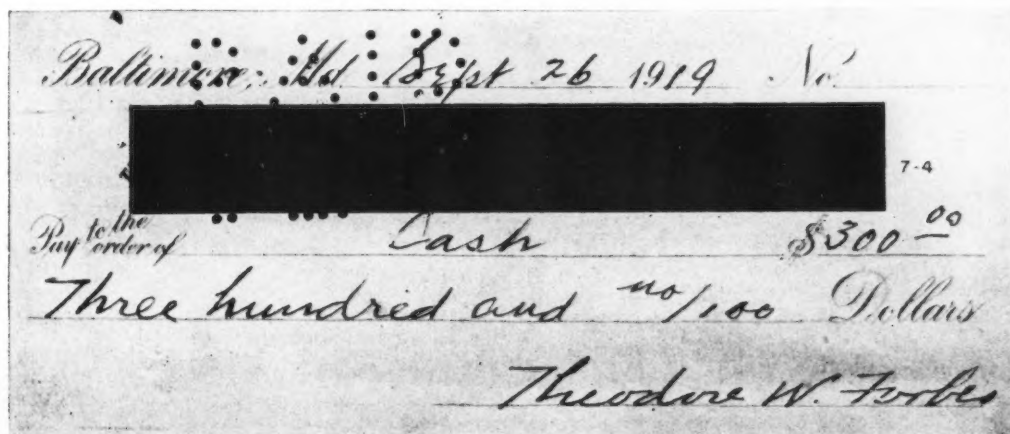 Baltimore, Md Sept 26 1919 No.
7-4
Pay to the order of Cash $300 00
Three hundred and no/100 Dollars
Theodore W. Forbes